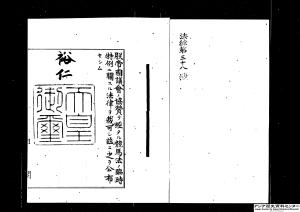 法律第五十八號
朕帝國議會ノ協贊ヲ經タル競馬法ノ臨時
特例ニ關スル法律ヲ裁可シ茲ニ之ヲ公布
セシム
裕仁
天皇
御璽
アジア歴史資料センター